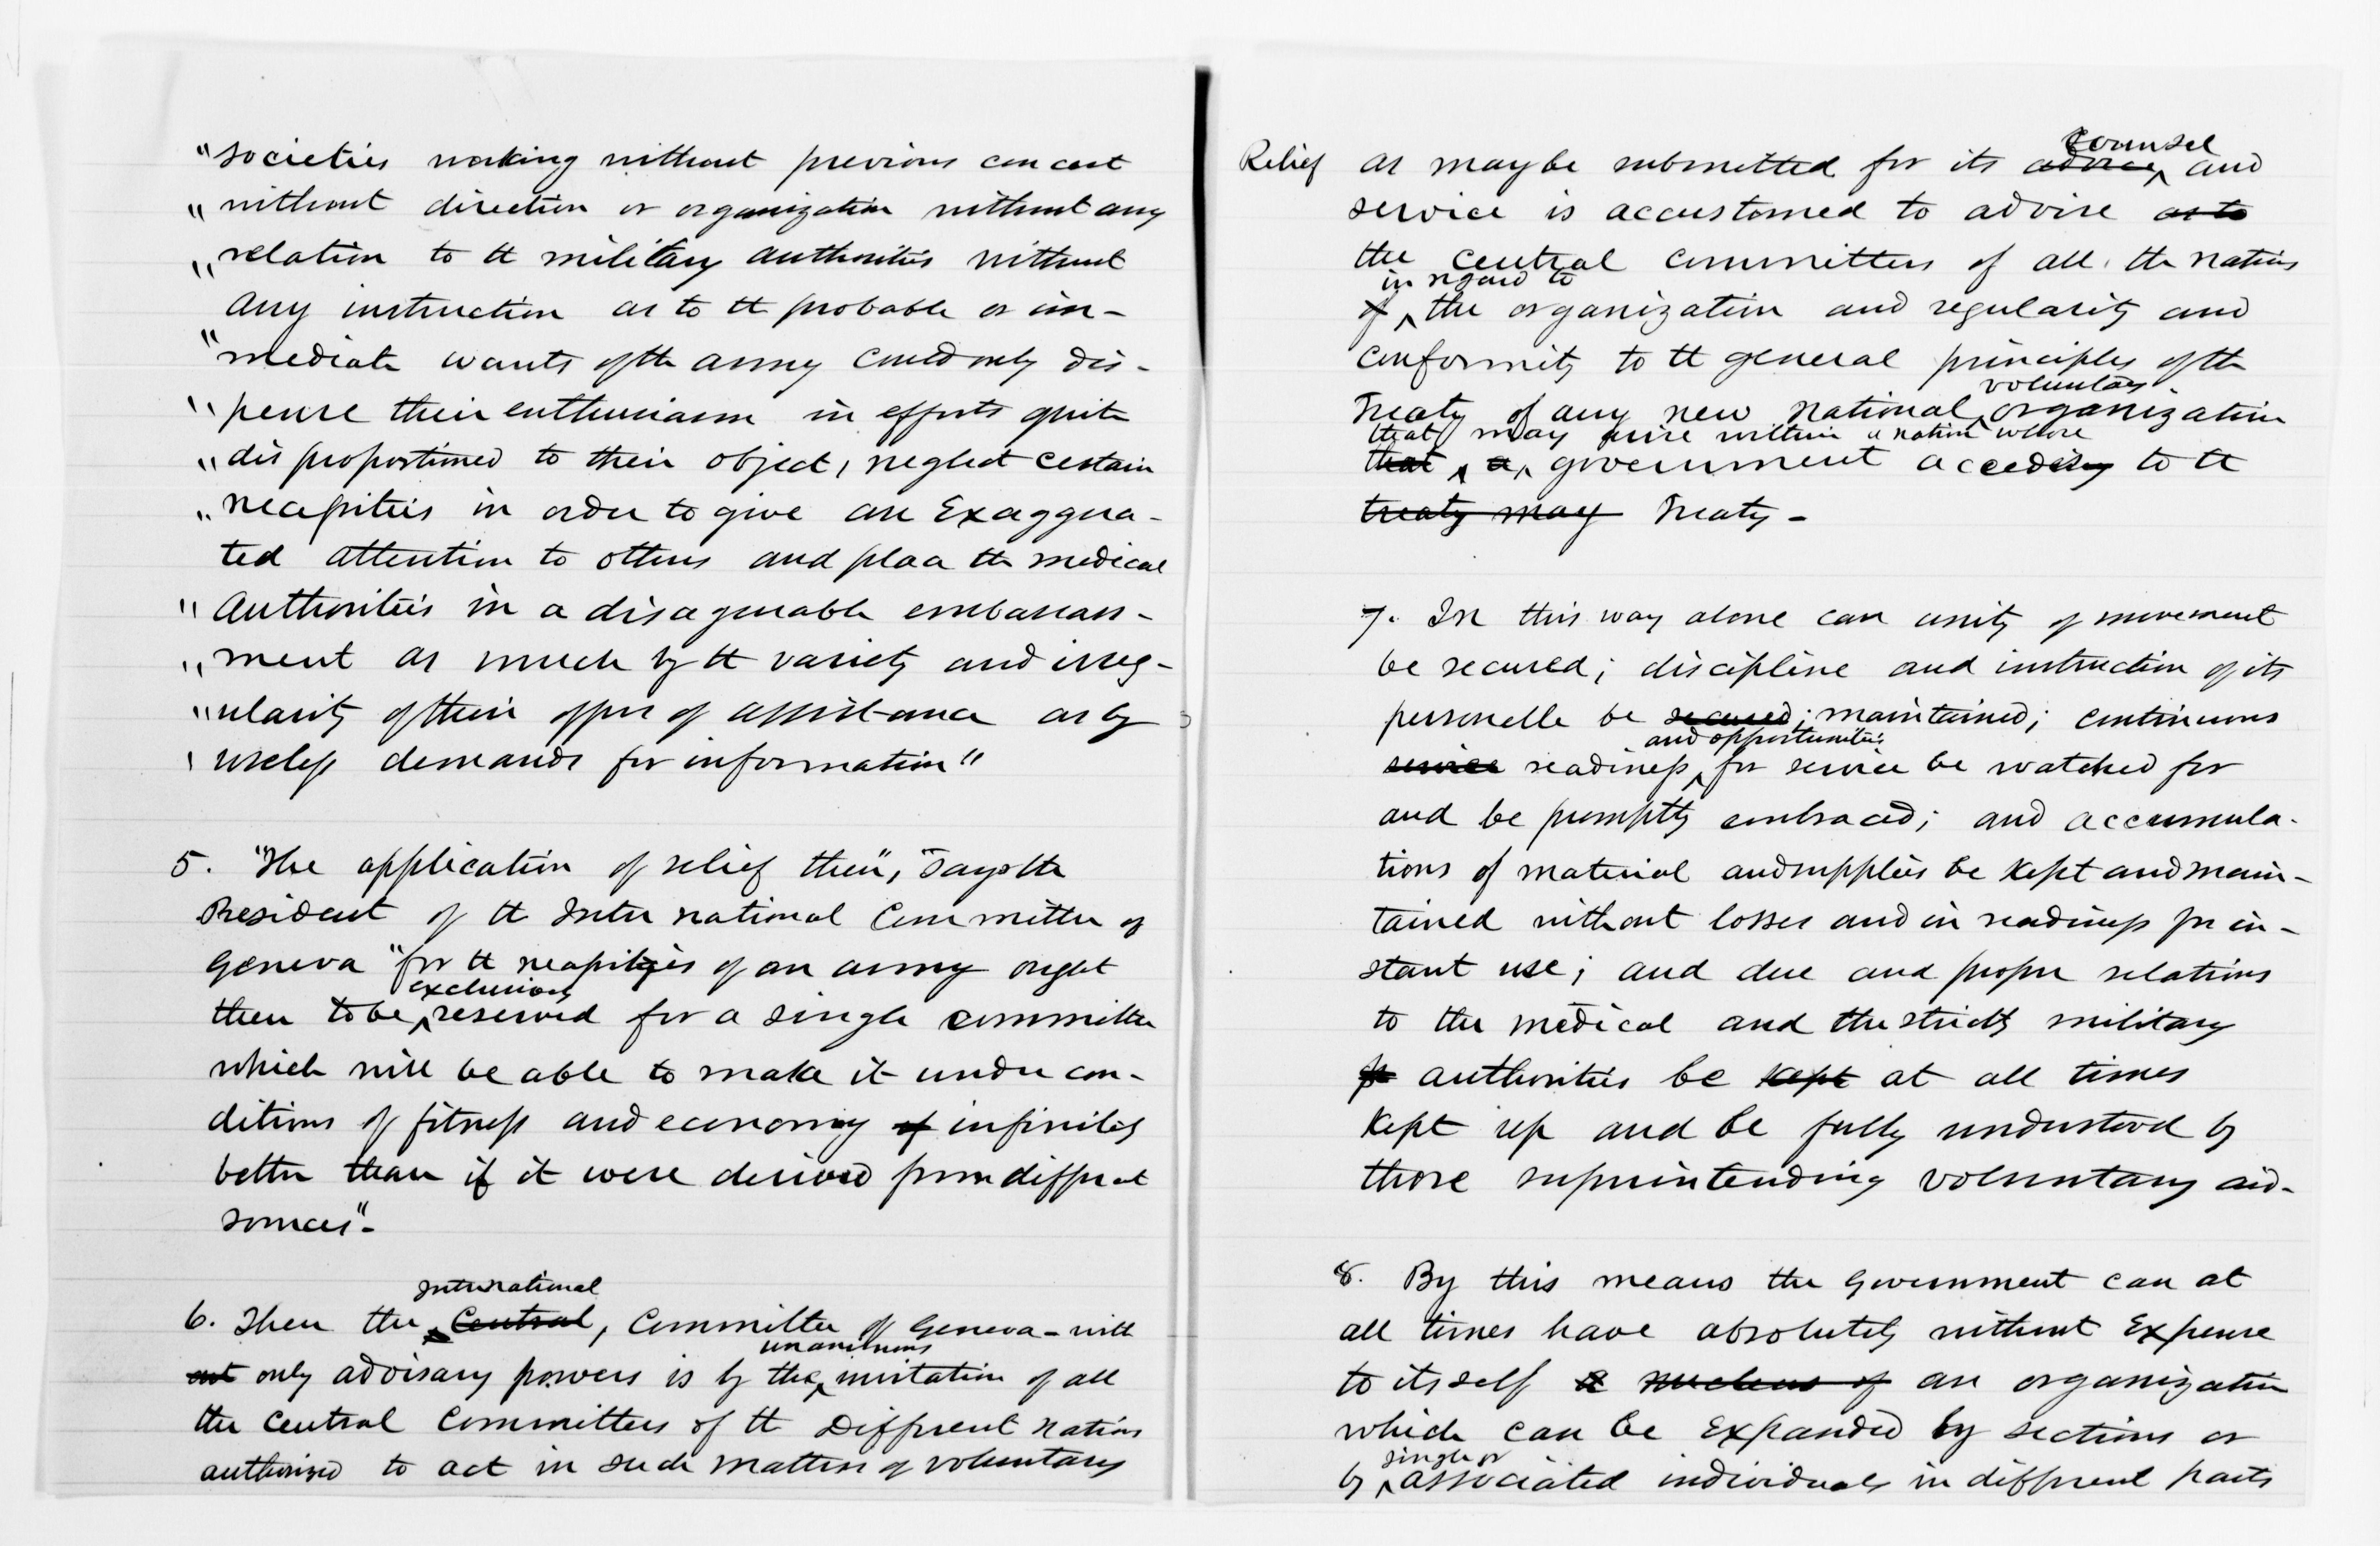 "societies working without previous concert
"without direction or organization without any
"relation to tt military authorities without
any instruction as to tt probable or im-
"mediate wants of th army could only dis-
"pense their enthusiasm in efforts quite
"disproportioned to their object, neglect certain
"necessities in order to give an Exaggera-
ted attention to others and place th medical
"Authorities in a disagreeable embarrass-
"ment as much by tt variety and irreg-
"ularity of their offers of assistance as by
"useless demands for information"
5. "The application of relief then", "says the
President of tt International Committee of
Geneva "for tt necessities of an army ought
exclusively
then to be ^ reserved for a single committee
which will be able to make it under con-
ditions of fitness and economy of infinitely
better than if it were derived from different
sources"-
International
6. Then the ^ Central, Committee of Geneva - with
unanimous
out only advisary powers is by the ^ invitation of all
the Central Committees of tt Different nations
authorized to act in such matters of voluntary
Counsel
Relief as may be submitted for its advice ^ and
service is accustomed to advise as to
the central committees of all the nations
in regard to
of ^ the organization and regularity and
conformity to tt general principles of th
voluntary
Treaty of any new national ^ organization
that may arise within a nation whose
that ^ a ^ government acceding to tt
treaty may Treaty -
7. In this way alone can unity of movement
be secured; discipline and instruction of its
personelle be secured; maintained; continuous
and opportunities
service readiness ^ for service be watched for
and be promptly embraced; and accumula-
tions of material and supplies be kept and main-
tained without losses and in readiness for in-
stant use; and due and proper relations
to the medical and the strictly military
authorities be kept at all times
kept up and be fully understood by
those superintending voluntary aid-
8. By this means the Government can at
all times have absolutely without Expense
to itself a nucleus of an organization
which can be Expanded by sections or
single or
by ^ associated individuals in different parts